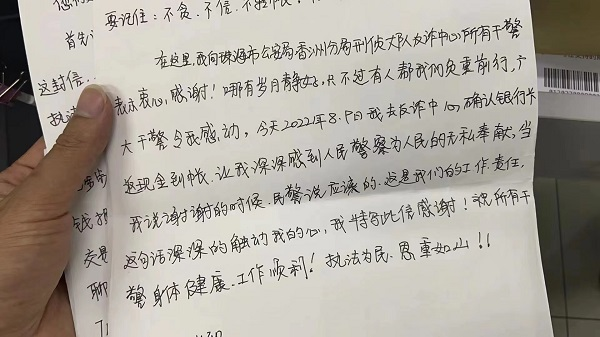 要记住：不贪、不信、不
在这里,我向珠海市公安局香洲分局刑侦大队反诈中心所有干警
表示衷心感谢！哪有岁月静好,只不过有人帮我们负重前行,广
大干警令我感动，今天2022年8.9日我去反诈中心,确认银行长
返现金到帐，让我深深感到人民警察为人民的无私奉献，当
我说谢谢的时候，民警说应该的.这是我们的工作责任，
这句话深深的触动我的心，我特写此信感谢！祝所有干
警身体健康、工作顺利！执法为民、恩重如山！！
首先
这封信
执法
钱
交易
聊